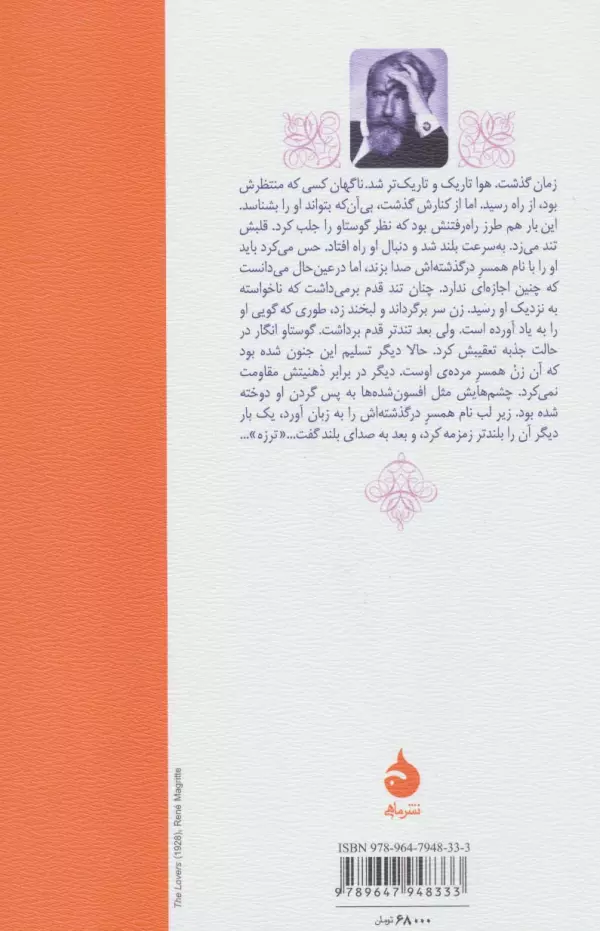 زمان گذشت. هوا تاریک و تاریک‌تر شد. ناگهان کسی که منتظرش
بود، از راه رسید. اما از کنارش گذشت، بی‌آن‌که بتواند او را بشناسد.
این بار هم طرز راه‌رفتنش بود که نظر گوستاو را جلب کرد. قلبش
تند می‌زد. به‌سرعت بلند شد و دنبال او راه افتاد. حس می‌کرد باید
او را با نام همسرِ درگذشته‌اش صدا بزند، اما درعین‌حال می‌دانست
که چنین اجازه‌ای ندارد. چنان تند قدم برمی‌داشت که ناخواسته
به نزدیک او رسید. زن سر برگرداند و لبخند زد، طوری که گویی او
را به یاد آورده است. ولی بعد تندتر قدم برداشت. گوستاو انگار در
حالت جذبه تعقیبش کرد. حالا دیگر تسلیم این جنون شده بود
که آن زنْ همسرِ مرده‌ی اوست. دیگر در برابر ذهنیتش مقاومت
نمی‌کرد. چشم‌هایش مثل افسون‌شده‌ها به پس گردن او دوخته
شده بود. زیر لب نام همسرِ درگذشته‌اش را به زبان آورد، یک بار
دیگر آن را بلندتر زمزمه کرد، و بعد به صدای بلند گفت...«ترزه»...
The Lovers (1928), René Magritte
نشر ماهی
ISBN 978-964-7948-33-3
9789647948333
۶۸۰۰۰ تومان